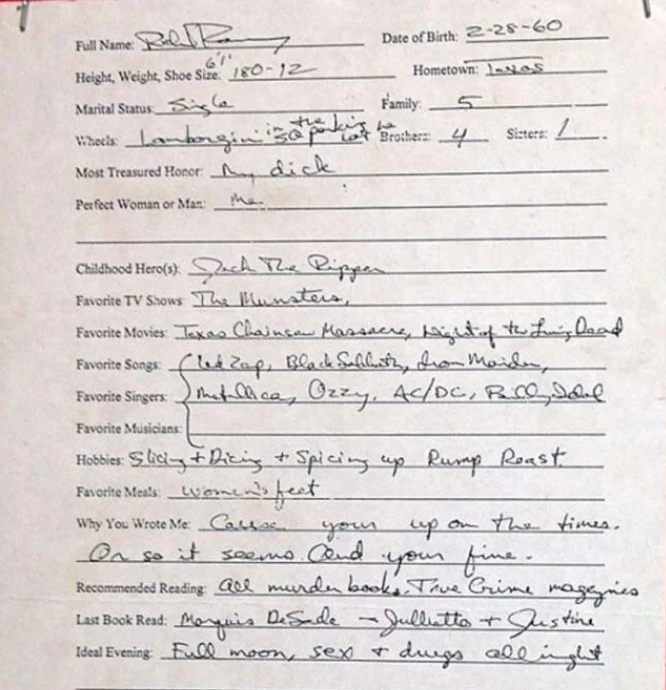 Full Name: Date of Birth: 2-28-60
Height, Weight, Shoe Size: 6'1" 180-12 Hometown: Texas
Marital Status: Single Family: 5
Wheels: Lamborgini in the SQ parking lot Brothers: 4 Sisters: 1
Most Treasured Honor: My dick
Perfect Woman or Man: Me
Childhood Hero(s): Jack The Ripper
Favorite TV Shows: The Munsters,
Favorite Movies: Texas Chainsaw Massacre, Night of the Living Dead
Favorite Songs: Led Zep, Black Sabbath, Iron Maiden,
Favorite Singers: Metallica, Ozzy, AC/DC, Billy Idol
Favorite Musicians:
Hobbies: Slicing + Dicing + Spicing up Rump Roast
Favorite Meals: women's feet
Why You Wrote Me: Cause your up on the times.
Or so it seems. And your fine.
Recommended Reading: All murder books, True Crime magazines
Last Book Read: Marquis DeSade - Jullietta + Justine
Ideal Evening: Full moon, sex + drugs all night